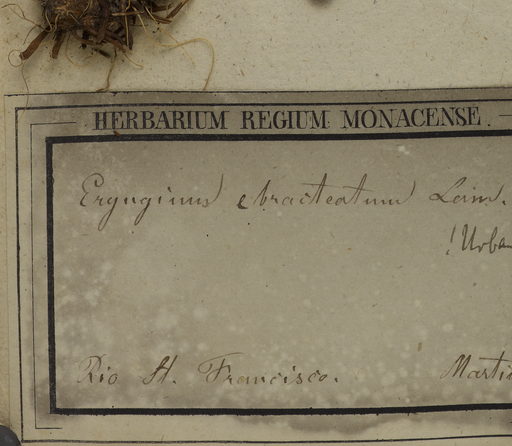 HERBARIUM REGIUM MONACENSE.
Eryngium ebracteatum Lam.
! Urba
Rio St. Francisco. Marti